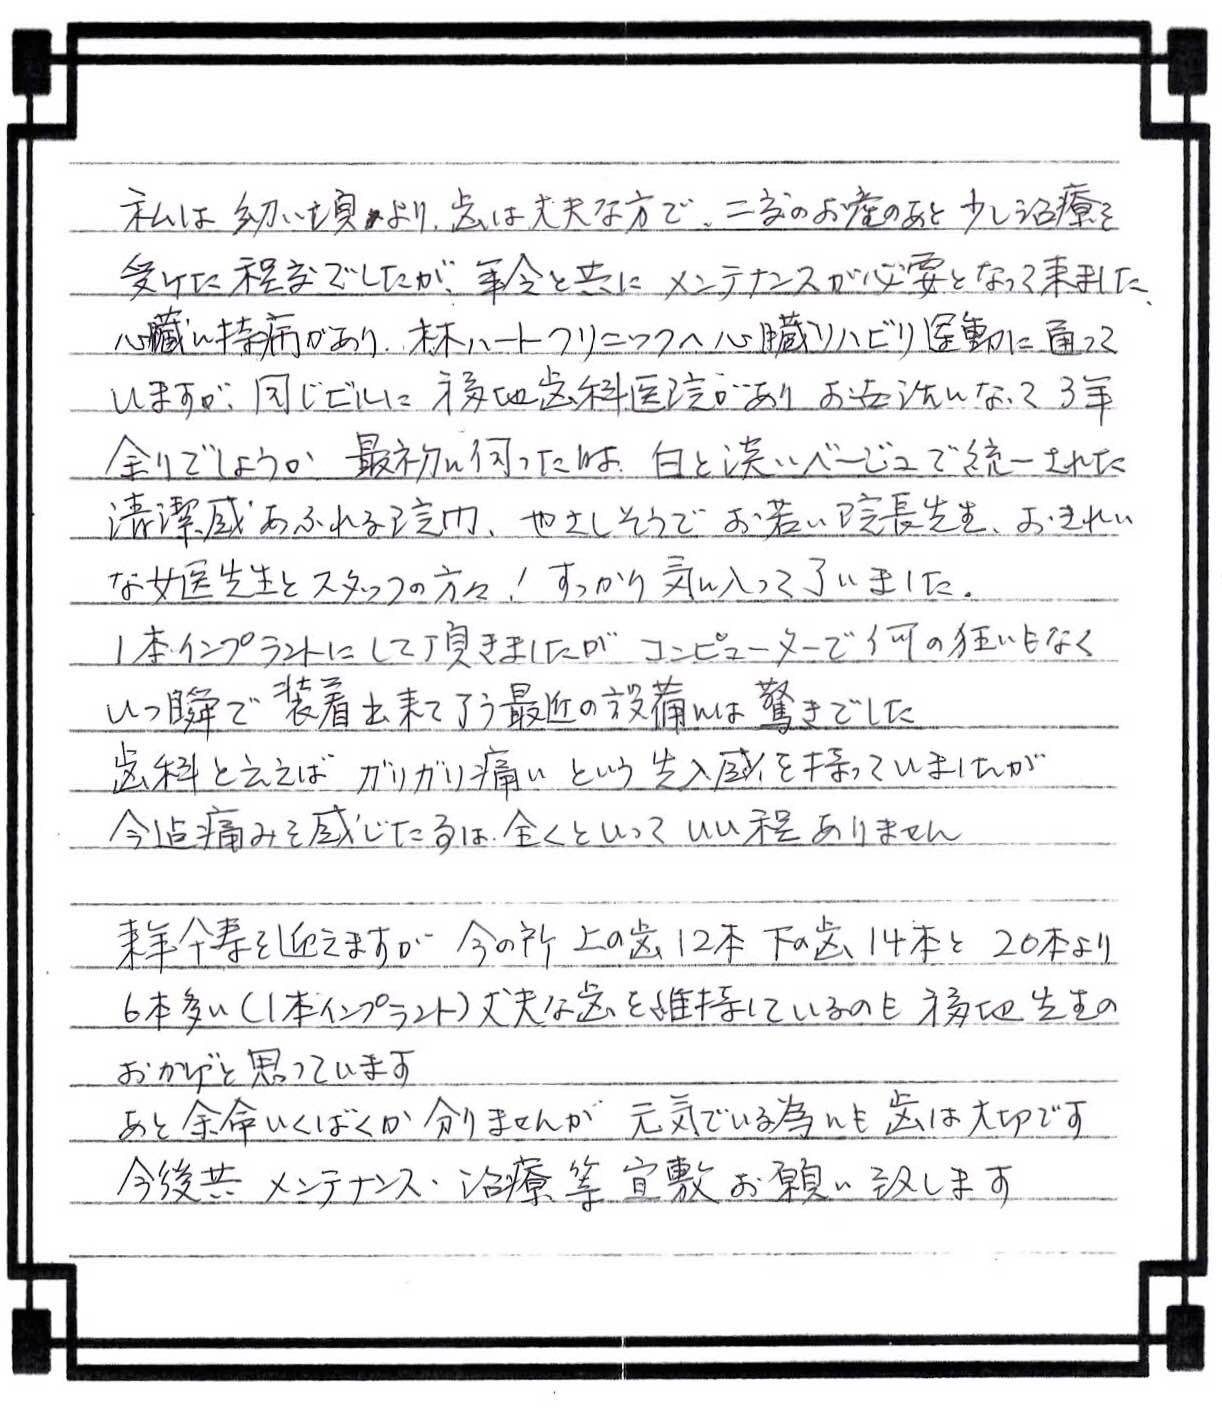 私は幼い頃より、歯は丈夫な方で、二度のお産のあと少し治療を
受けた程度でしたが、年令と共にメンテナンスが必要となって来ました、
心臓に持病があり、林ハートクリニックへ心臓リハビリ運動に通って
いますが、同じビルに 歯科医院があり お世話になって3年
余りでしょうか 最初に伺った時は、白と淡いベージュで統一された
清潔感あふれる院内、やさしそうでお若い院長先生、おきれい
な女医先生とスタッフの方々!すっかり気に入って了いました。
1本インプラントにして頂きましたが コンピューターで何の狂いもなく
いっ瞬で装着出来て了う最近の設備には驚きでした
歯科と云えば ガリガリ痛い という先入感を持っていましたが
今迄痛みを感じた事は全くといっていい程ありません
来年傘寿を迎えますが 今の所 上の歯12本 下の歯14本と 20本より
6本多い(1本インプラント)丈夫な歯を維持しているのも 先生の
おかげと思っています
あと余命いくばくか分りませんが 元気でいる為にも歯は大切です
今後共 メンテナンス・治療等宜敷お願い致します